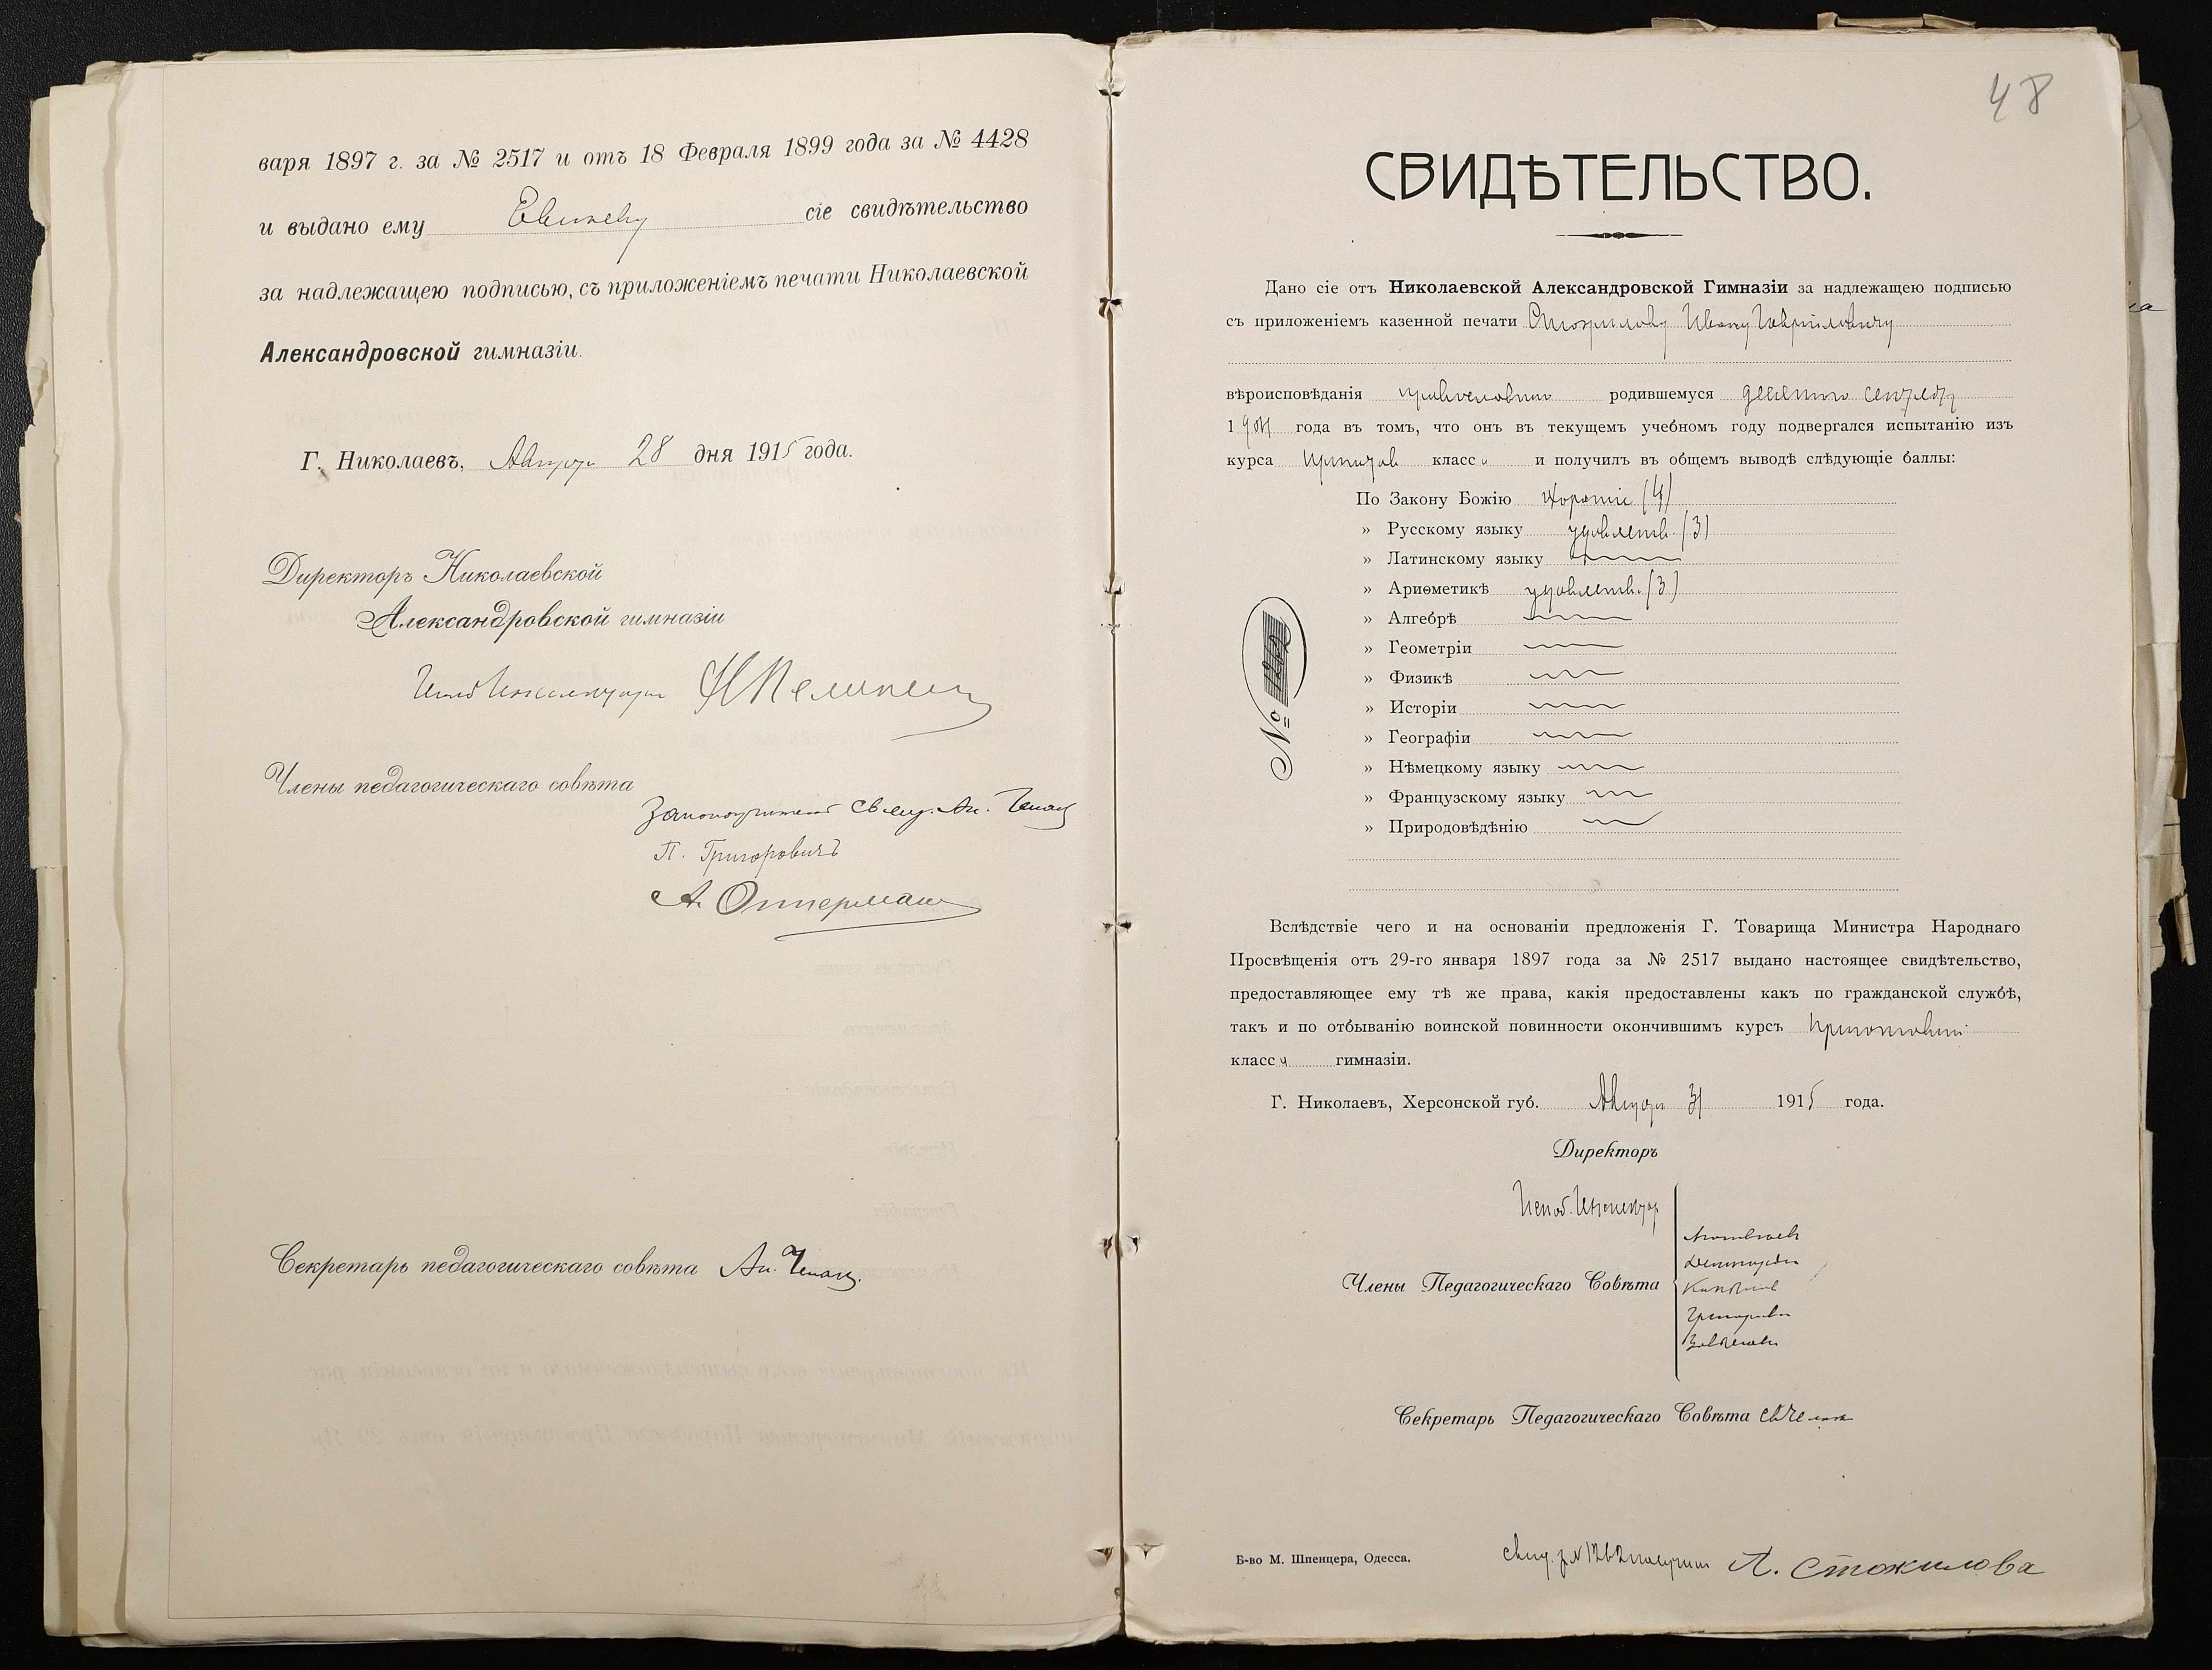 варя 1897 г. за № 2517 и отъ 18 Февраля 1899 года за № 4428
и выдано ему сіе свидѣтельство
за надлежащею подписью, съ приложеніемъ печати Николаевской
Александровской гимназіи.
Г. Николаевъ, Августа 28 дня 1915 года.
Директоръ Николаевской
Александровской гимназіи
Члены педагогическаго совѣта
Законоучитель Свящ. Ан.
П. Григоровичъ
А. Оттерманъ
Секретарь педагогическаго совѣта Ан.
48
СВИДѢТЕЛЬСТВО.
Дано сіе отъ Николаевской Александровской Гимназіи за надлежащею подписью
съ приложеніемъ казенной печати Стожилову Ивану Гавриловичу
вѣроисповѣданія православнаго родившемуся
19 года въ томъ, что онъ въ текущемъ учебномъ году подвергался испытанію изъ
курса класса и получилъ въ общемъ выводѣ слѣдующіе баллы:
По Закону Божію хорошіе (4)
» Русскому языку удовлетв. (3)
» Латинскому языку
» Ариѳметикѣ удовлетв. (3)
» Алгебрѣ
» Геометріи
» Физикѣ
» Исторіи
» Географіи
» Нѣмецкому языку
» Французскому языку
» Природовѣдѣнію
№ 1262
Вслѣдствіе чего и на основаніи предложенія Г. Товарища Министра Народнаго
Просвѣщенія отъ 29-го января 1897 года за № 2517 выдано настоящее свидѣтельство,
предоставляющее ему тѣ же права, какія предоставлены какъ по гражданской службѣ,
такъ и по отбыванію воинской повинности окончившимъ курсъ
класса гимназіи.
Г. Николаевъ, Херсонской губ. Августа 31 1915 года.
Директоръ
Члены Педагогическаго Совѣта
Секретарь Педагогическаго Совѣта
Б-во М. Шпенцера, Одесса.
свид. за № 1262 получила А. Стожилова